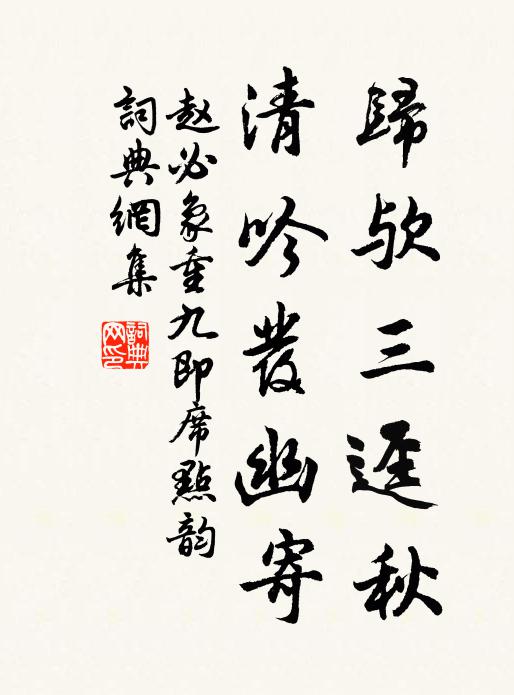 歸欤三逕秋
清吟發幽寄
赵必象重九即席點韵
詞典網集
詞典网印